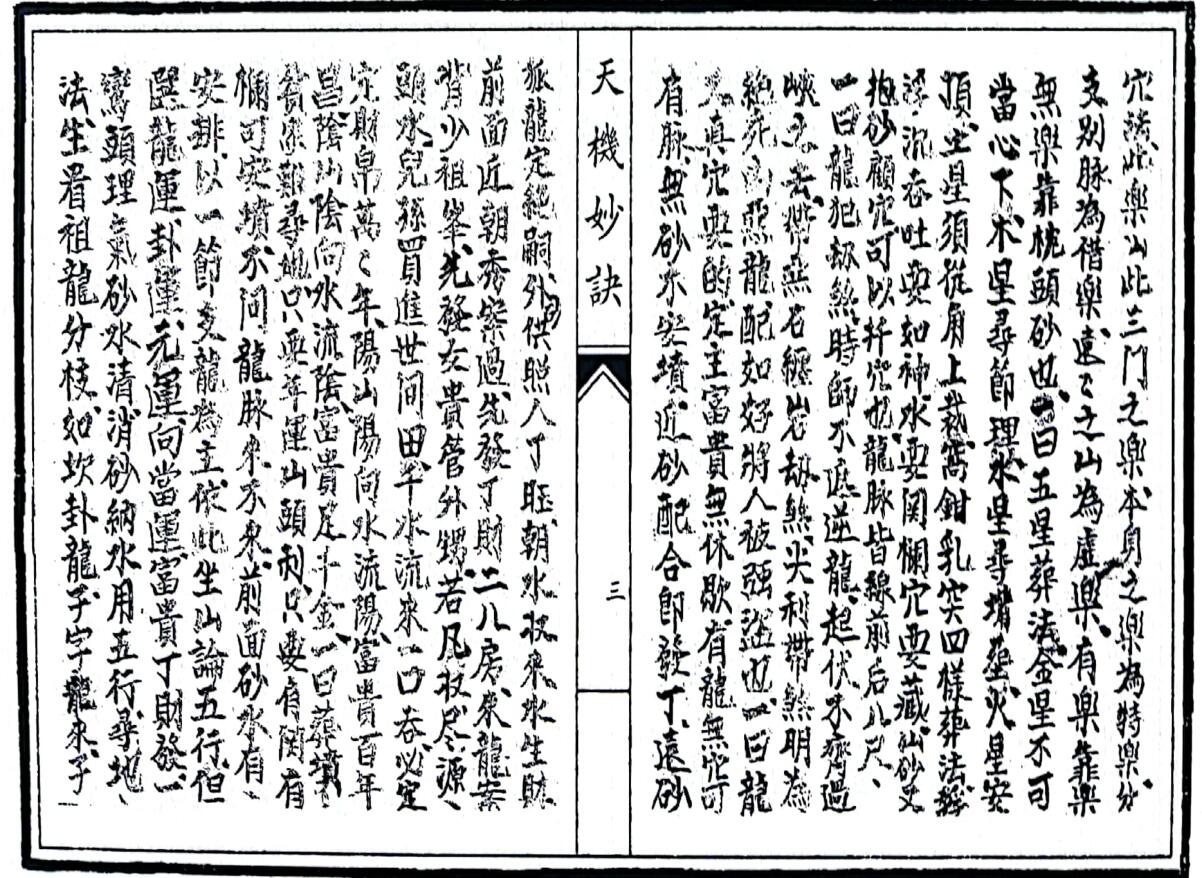 穴法此樂山此三門之樂本身之樂為特樂分
支別脉為借樂遠々之山為虛樂有樂靠樂
無樂靠枕頭砂也一曰五星葬法金星不可
當心下木星尋節理水星尋墻壟火星安
頂土星須從角上裁窩鉗乳突四樣葬法
浮沉吞吐要如神水要関欄穴要藏山砂
抱砂顧穴可以扦穴也龍脉皆線前后八尺
一曰龍犯劫煞時師不遮逆龍起伏不齊過
峽石纏岩劫煞尖利帶煞明為
絕死凶惡龍配如好將人被强盗也一曰龍
真穴要的定主富貴無休歇有龍無穴可
有脉無砂水安墳近砂配合即發丁遠砂
天機妙訣
三
孤龍定絕嗣外供照人丁旺朝水收來水生財
前面近朝秀案過先發丁財二八房來龍案
背少祖峯先發女貴管外甥若凡收尽源
頭水兒孫買進世間田平水流來一口吞必定
定財帛萬々年陽山陽向水流陽富貴百年
昌陰山陰向水流陰富貴足千金一曰葬墳
貧窮難尋地只要年運山頭利只要有関有
欄可安墳不問龍脉來不來前面砂水有
安排以一節支龍為主依此坐山論五行但
挨龍運卦運元運向當運富貴丁財發一
巒頭理氣砂水清消砂納水用五行尋地
法生看祖龍分枝如坎卦龍子字龍來子